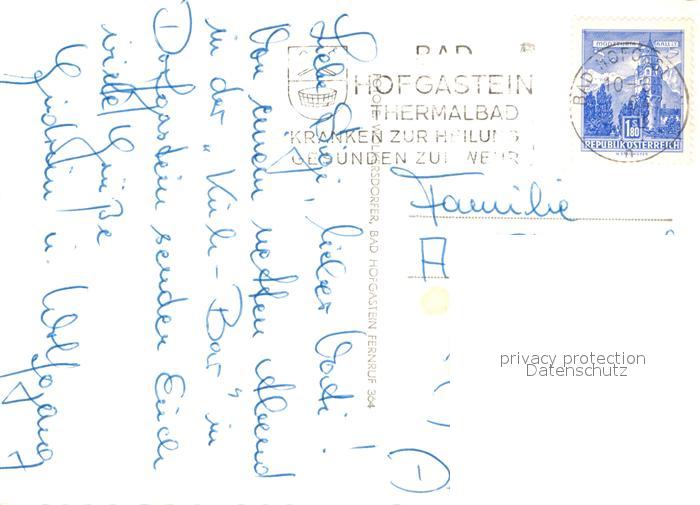 BAD
HOFGASTEIN
THERMALBAD
KRANKEN ZUR HEILUNG
GESUNDEN ZUR WEHR
MÜNZTURM HALL
1.80
REPUBLIK ÖSTERREICH
BAD HOFG
10
Familie
A
BAD HOFGASTEIN FERNRUF 364
Liebe lieber Vati!
Von einem netten Abend
in der "Kuh-Bar" in
Dorfgastein senden Euch
viele Grüße
u. Wolfgang
(A)
privacy protection
Datenschutz